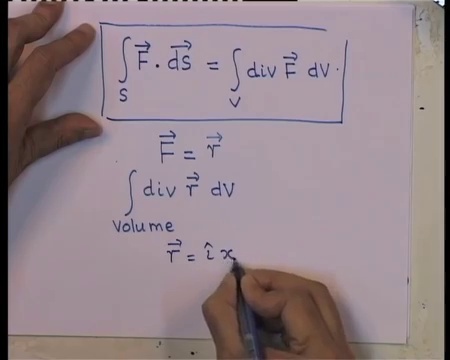 ∫_S F⃗ · dS⃗ = ∫_V div F⃗ dV.
F⃗ = r⃗
∫_volume div r⃗ dV
r⃗ = î x